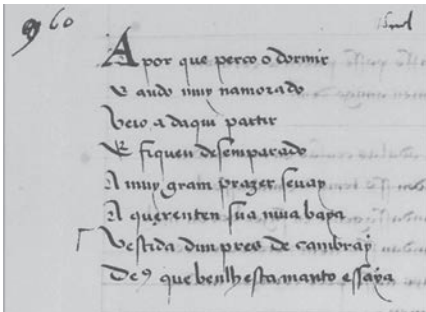 960
A por que perço o dormir
E ando muy namorado
Veio a daqui partir
E fiquen desemparado
A muy gram prazer sevay
A querenten sua mua baya
Vestida dun pres de cambray
De9 que benlhesta manto essaya